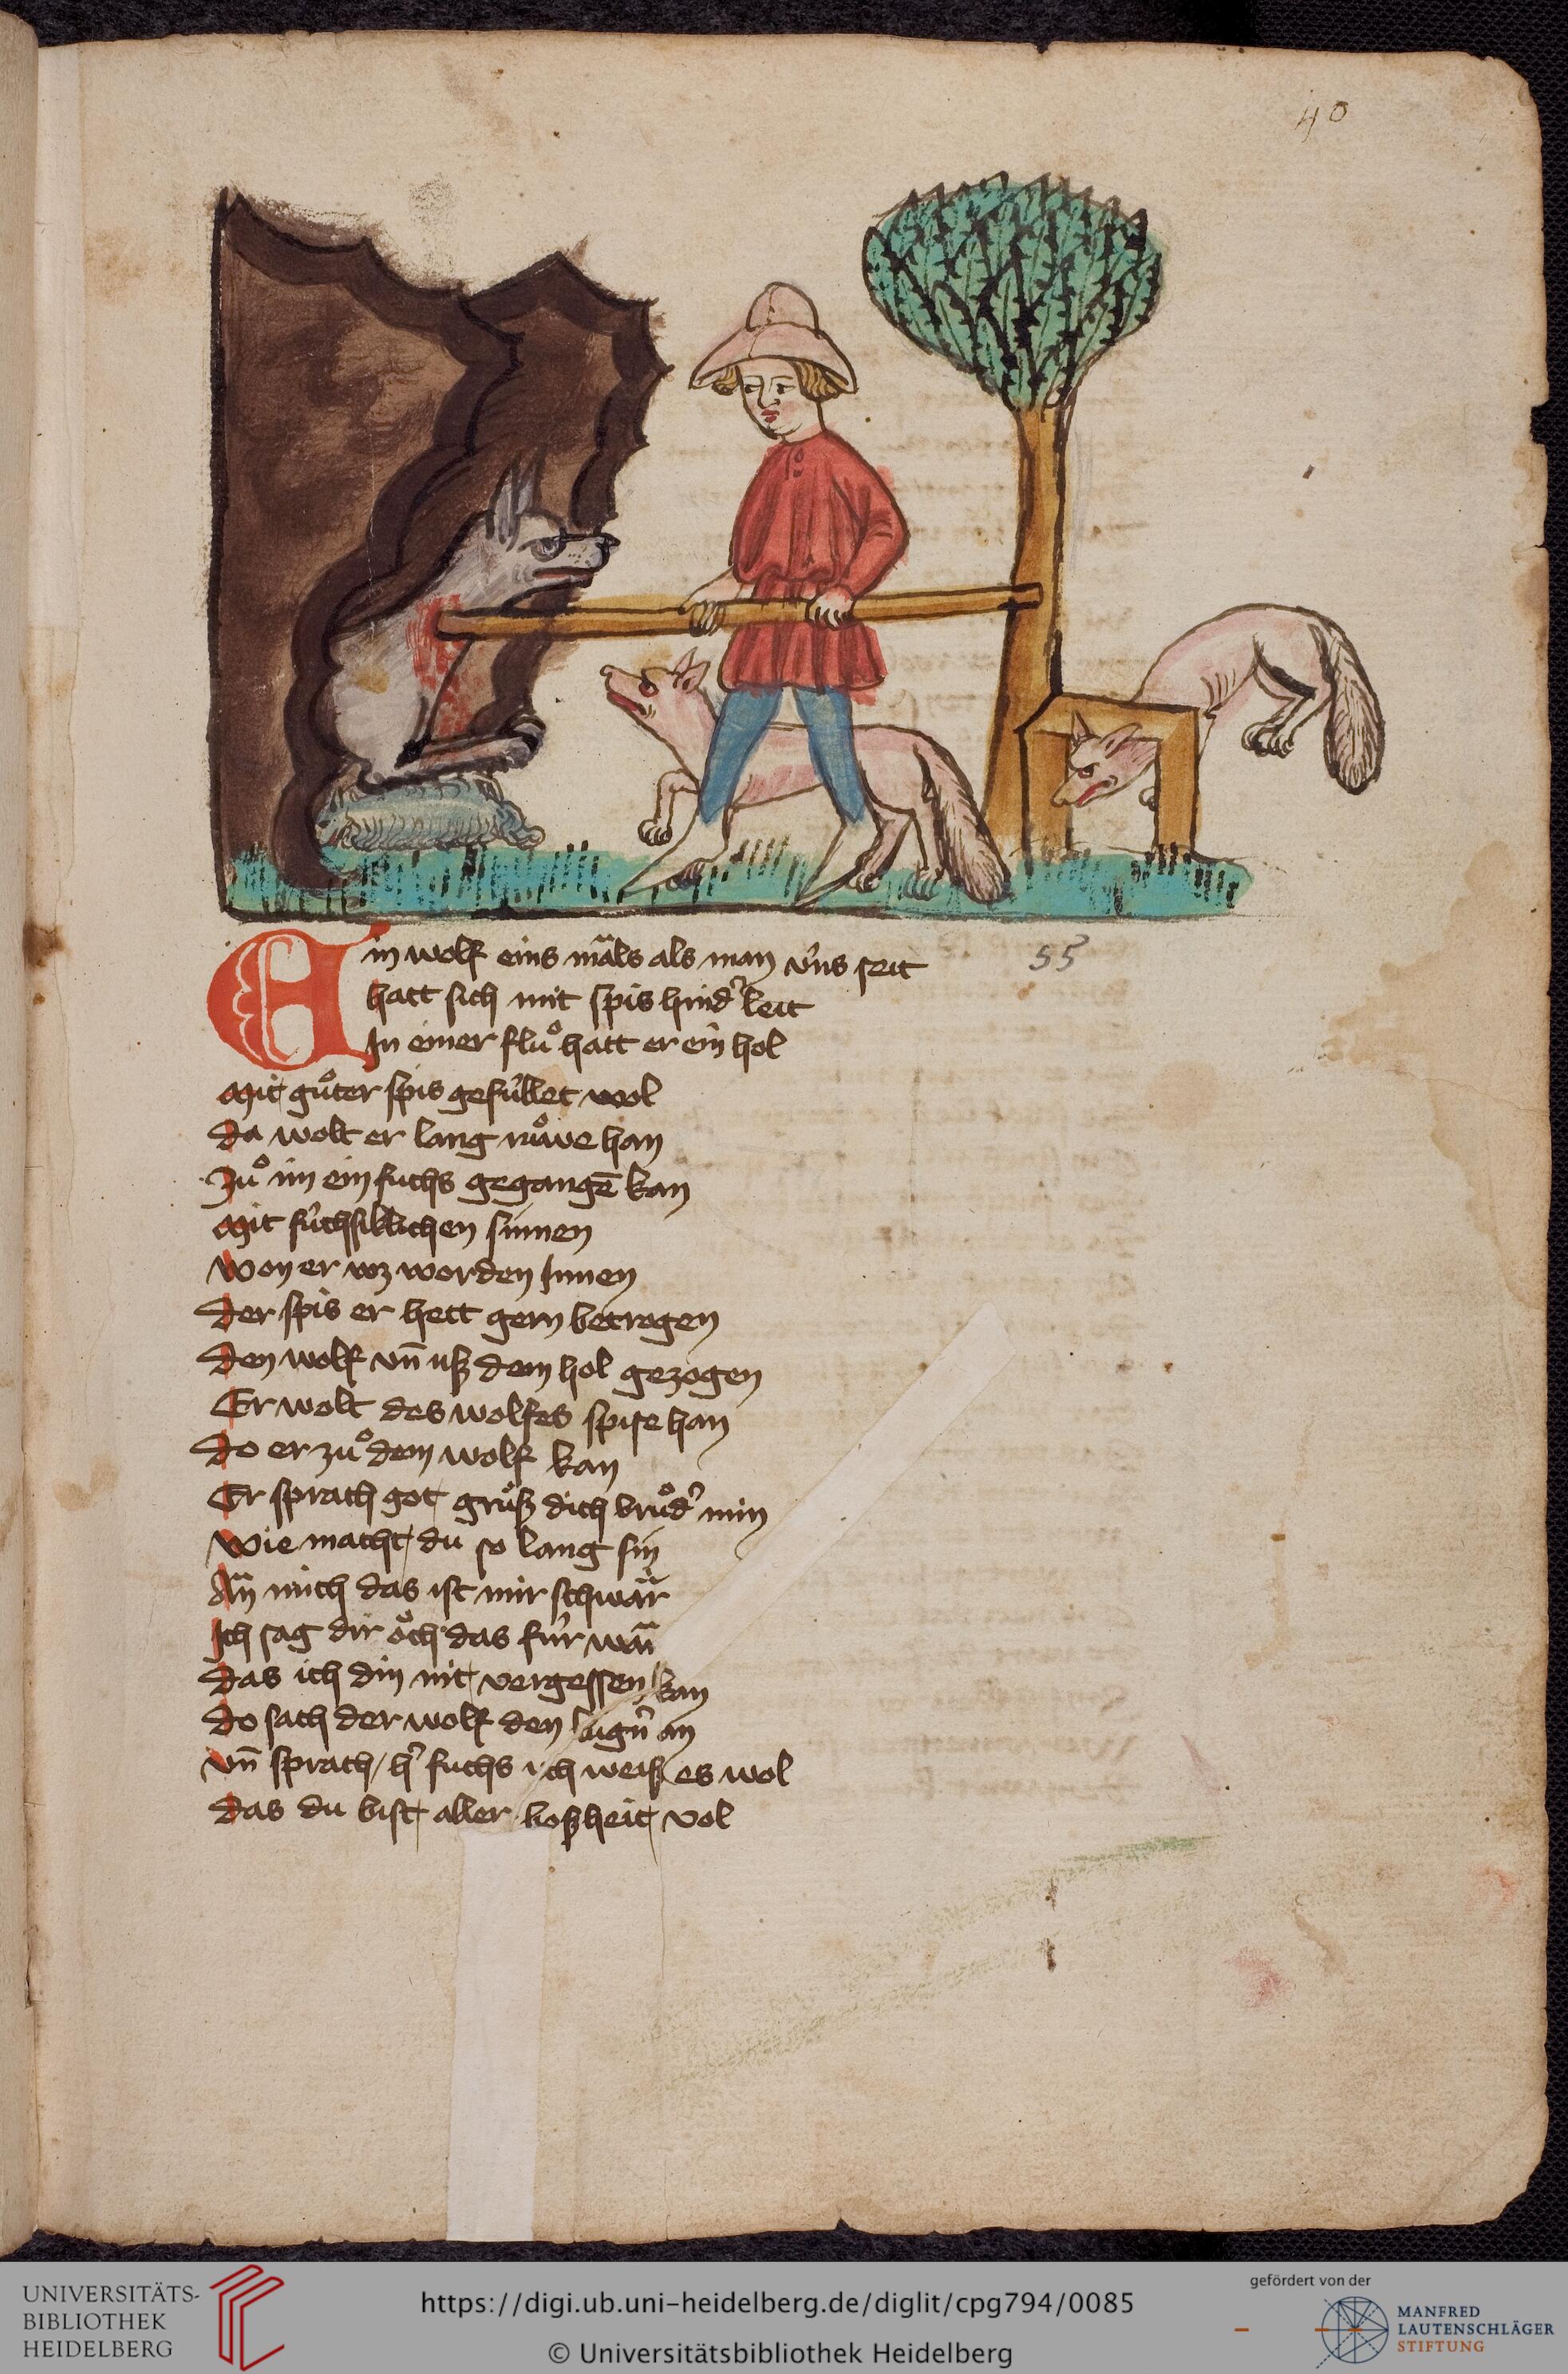 40
Ein wolf eins maͤls als man v́ns seit
hatt sich mit spis hind᾽ leit
In einer fluͦ hatt er ein hol
Mit guͦter spis gefúllet wol
Da wolt er lang ruͦwe han
Zuͦ im ein fuchs gegangē kan
Mit fúchsiklichen sinnen
Won er wz worden Innen
Der spis er hett gern betrogen
Den wolf vn̄ uß dem hol gezogen
Er wolt des wolfes spise han
Do er zuͦ dem wolf kan
Er sprach got gruͦß dich bruͦd᾽ min
Wie macht du so lang sin
Aͤn mich das ist mir schwaͤr
Ich sag dir oͦch das fúr waͤr
Das ich din nit vergessen kan
Do sach der wolf den lugn᾽ an
Vn̄ sprach / h᾽ fuchs ich weiß es wol
Das du bist aller boßheit vol
55
UNIVERSITÄTS-
BIBLIOTHEK
HEIDELBERG
https://digi.ub.uni-heidelberg.de/diglit/cpg794/0085
© Universitätsbibliothek Heidelberg
gefördert von der
MANFRED
LAUTENSCHLÄGER
STIFTUNG